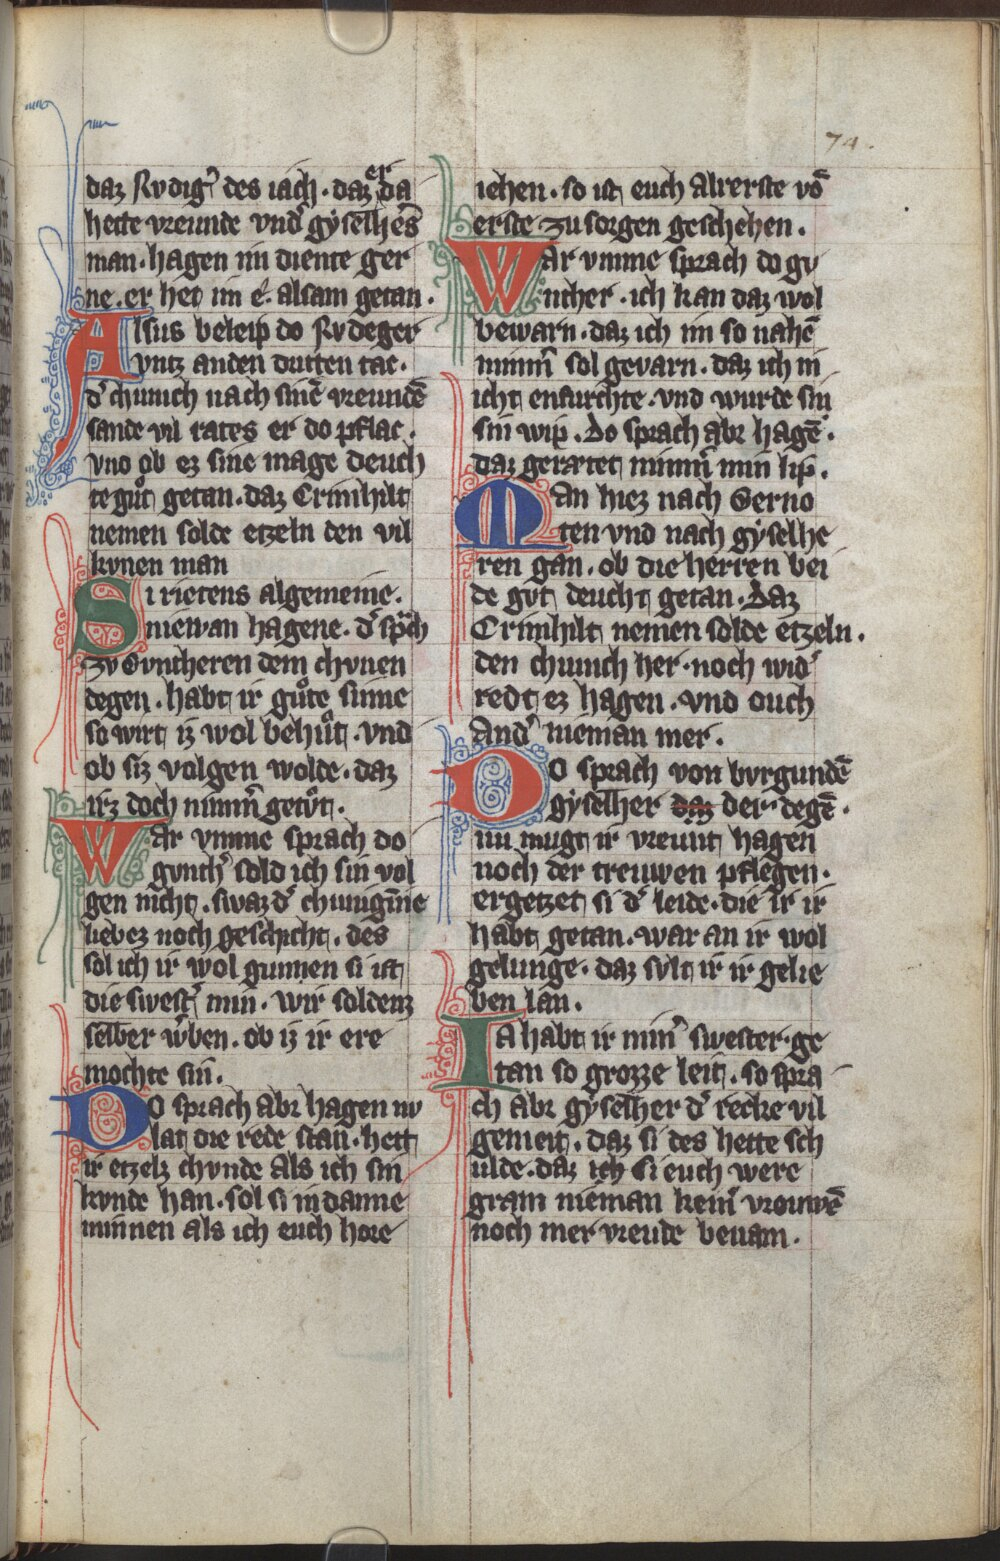 74.
daz Rvdig̃ des iach. daz er da
hette vreunde vnd̾ gẏselh̾es
man. hagen im diente ger
ne. er het im e. alsam getan.
Alsus beleip do Rvdeger
vntz anden dritten tac.
d̾ chunich nach sinē vreundē
sande vil rates er do pflac.
vno ob ez sine mage deuch
te gůt getan. daz Crimhilt
nemen solde etzeln den vil
kvnen man
Si rietens algemeine.
niewan hagene. d̾ sp̾ch
zv Gvntheren dem chvnen
degen. habt ir gůte sinne
so wirt iz wol behůt. vnd
ob siz volgen wolde. daz
irz doch nimm̾ getůt.
War vmme sprach do
gvnth̾ sold ich sin vol
gen nicht. swaz d̾ chunigīne
liebez noch geschicht. des
sol ich ir wol gunnen si ist
die swest̾ min. wir soldenz
selber w̾ben. ob iz ir ere
mochte sin.
Do sprach abr hagen nv
lat die rede stan. hett
ir etzelz chvnde als ich sin
kvnde han. sol si in danne
minnen als ich euch hore
iehen. so ist euch alrerste vō
erste zu sorgen geschehen.
War vmme sprach do gv
nther. ich kan daz wol
bewarn. daz ich im so nahē
nimm̾ sol gevarn. daz ich in
icht enfurchte. vnd wurde sin
sin wip. Do sprach abr hagē.
daz geratet nimm̾ min lip.
Man hiez nach Gerno
ten vnd nach gẏselhe
ren gan. ob die herren bei
de gvt deucht getan. Daz
Crimhilt nemen solde etzeln.
den chunich her. noch wid̾
redt ez hagen. vnd ouch
and̾ nieman mer.
Do sprach von bvrgundē
gẏselher daz der degē.
nu mugt ir vreunt hagen
noch der treuwen pflegen.
ergetzet si d̾ leide. die ir ir
habt getan. war an ir wol
gelunge. daz svlt ir ir gelie
ben lan.
Ia habt ir min̾ swester. ge
tan so grozze leit. so spra
ch abr gẏselher d̾ recke vil
gemeit. daz si des hette sch
ulde. daz ich si euch were
gram nieman kein̾ vrouwē
noch mer vreude benam.